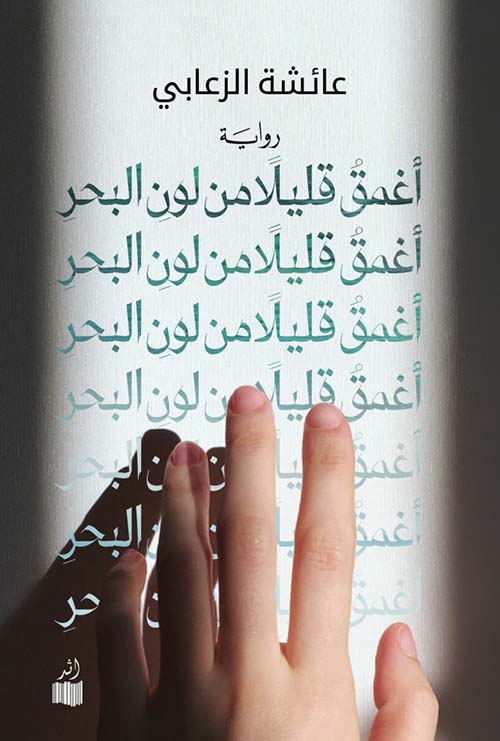 عائشة الزعابي
رواية
أغمقُ قليلًا من لونِ البحرِ
أغمقُ قليلًا من لونِ البحرِ
أغمقُ قليلًا من لونِ البحرِ
أغمقُ قليلًا من لونِ البحرِ
أغمقُ البحرِ
أغمقُ البحرِ
أغمقُ
اثد